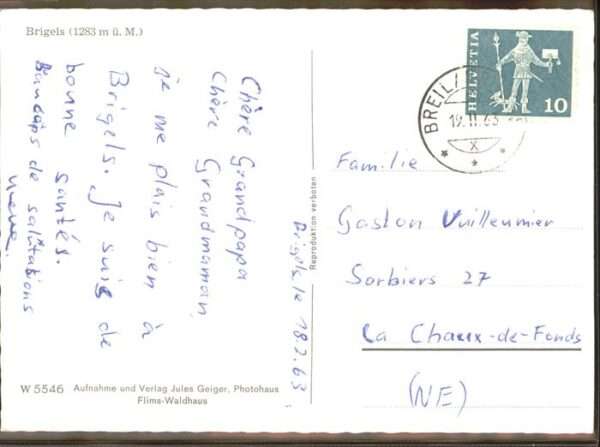 Brigels (1283 m ü. M.)
Brigels, le 18.2.63.
Chère Grandpapa
Chère Grandmaman,
je me plais bien à
Brigels. Je suis de
bonne santés.
de salutations
W 5546 Aufnahme und Verlag Jules Geiger, Photohaus
Flims-Waldhaus
Reproduktion verboten
HELVETIA
10
BREIL/
19.II.63
X
Familie
Gaston Vuilleumier
Sorbiers 27
La Chaux-de-Fonds
(NE)